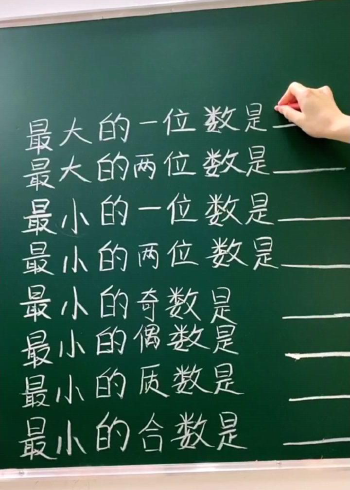 最大的一位数是___
最大的两位数是___
最小的一位数是___
最小的两位数是___
最小的奇数是___
最小的偶数是___
最小的质数是___
最小的合数是___